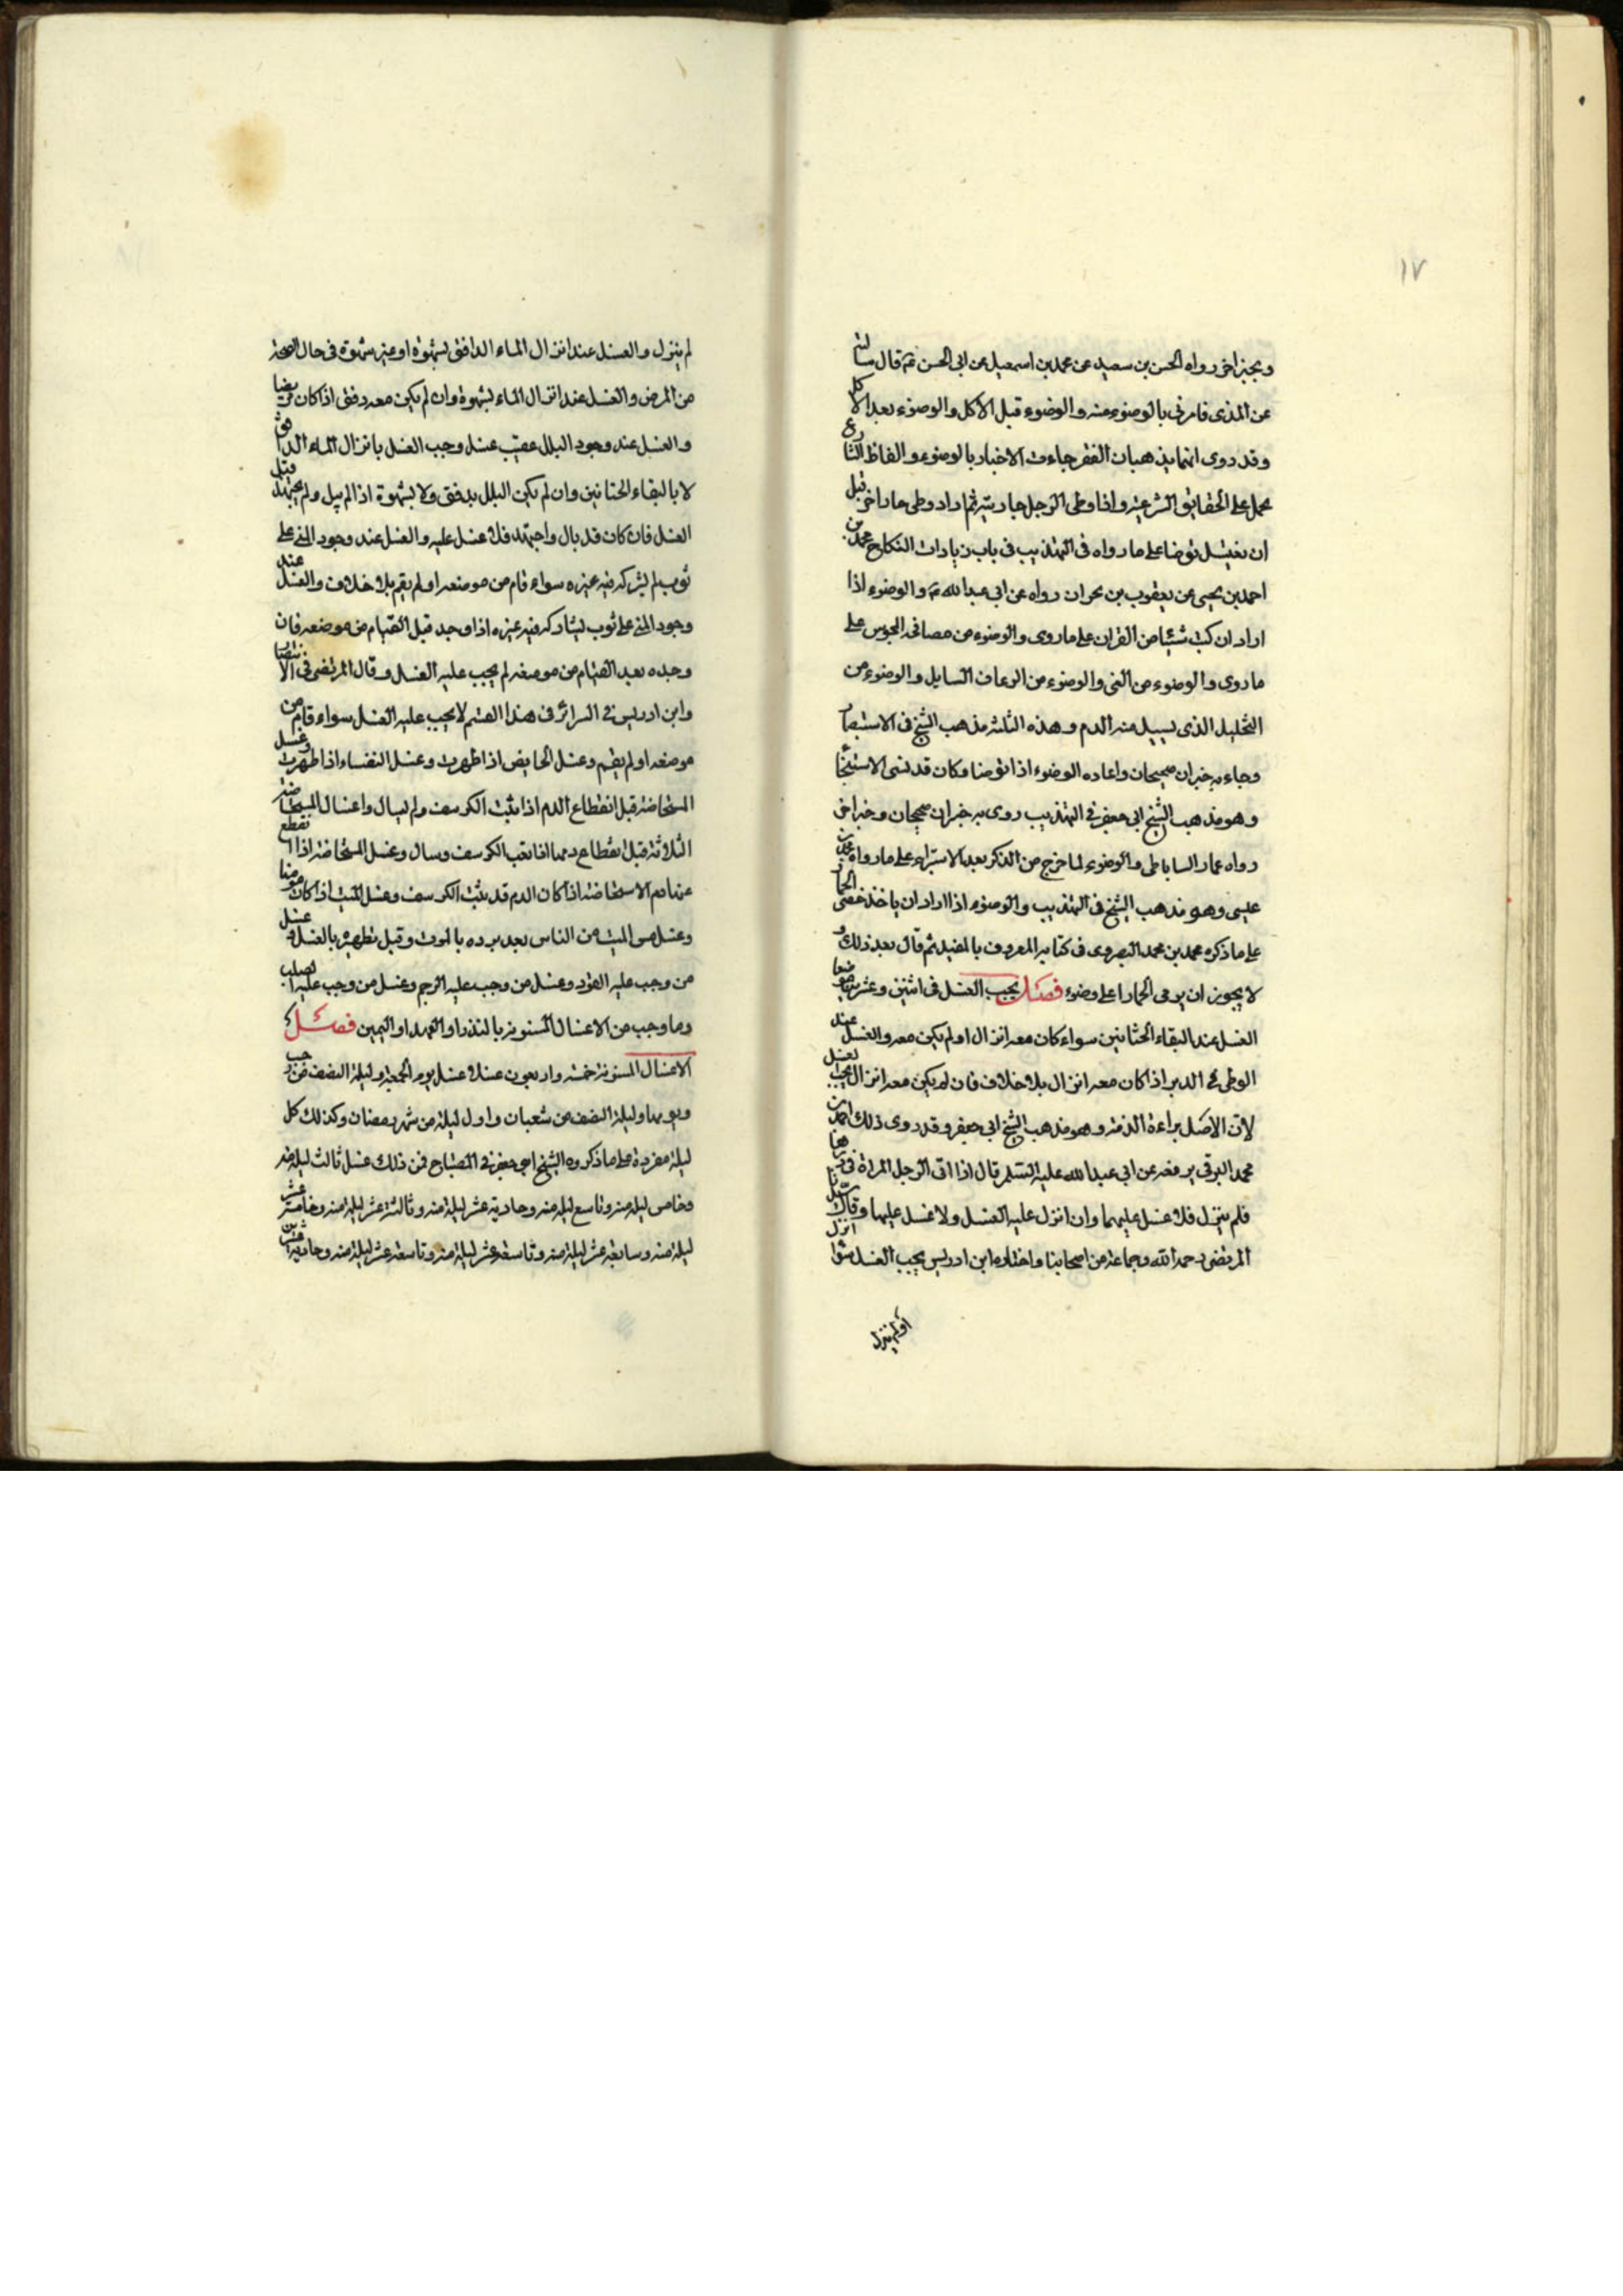 ١٧
وبخبر اخر رواه الحسن بن سعيد عن محمد بن اسمعيل عن ابى الحسن ع قال سالته
عن المذى فامرنى بالوضوء منه والوضوء قبل الاكل والوضوء بعد الاكل
وقد روى انهما يذهبان الفقر جاءت الاخبار بالوضوء والفاظ الشارع
يحمل على الحقايق الشرعيه واذا وطى الرجل جاريته ثم اراد وطى جارا اخر قبل
ان يغتسل توضا على ما رواه فى التهذيب فى باب زيادات النكاح محمد بن
احمد بن يحيى عن يعقوب بن بحران رواه عن ابى عبد الله ع والوضوء اذا
اراد ان كتب شيئا من القران على ما روى والوضوء من مصافحه المجوس على
ما روى والوضوء من القى والوضوء من الرعاف السايل والوضوء من
التخليل الذى يسيل منه الدم وهذه الثلثه مذهب الشيخ فى الاستبصار
وجاء به خبران صحيحان واعاده الوضوء اذا توضا وكان قد نسى الاستنجا
وهو مذهب الشيخ ابى جعفر فى التهذيب روى به خبران صحيحان وخبر اخر
رواه عمار الساباطى والوضوء لما خرج من الذكر بعد الاستبراء على ما رواه محمد بن
عيسى وهو مذهب الشيخ فى التهذيب والوضوء اذا اراد ان ياخذ حصى الجمار
على ما ذكره محمد بن محمد البصروى فى كتابه المعروف بالمفيد ثم قال بعد ذلك و
لا يجوز ان يرمى الجمار الا على وضوء فصل يجب الغسل فى اثنين وعشرين موضعا
الغسل عند التقاء الختانين سواء كان معه انزال او لم يكن معه والغسل عند
الوطى فى الدبر اذا كان معه انزال بلا خلاف فان لم يكن معه انزال لا يجب الغسل
لان الاصل براءة الذمه وهو مذهب الشيخ ابى جعفر وقد روى ذلك احمد بن
محمد البرقى يرفعه عن ابى عبد الله عليه السلم قال اذا اتى الرجل المراة فى دبرها
فلم ينزل فلا غسل عليهما وان انزل عليه الغسل ولا غسل عليها وقال سيدنا
المرتضى رحمه الله وجماعة من اصحابنا واختاره ابن ادريس يجب الغسل سواء انزل
او لم ينزل
لم ينزل والغسل عند انزال الماء الدافق بشهوة او غير شهوة فى حال الصحة
من المرض والغسل عند انزال الماء بشهوة وان لم يكن معه دفق اذا كان مريضا
والغسل عند وجود البلل عقيب غسل وجب الغسل بانزال الماء الدافق
لا بالتقاء الختانين وان لم يكن البلل بدفق ولا بشهوة اذا لم يبل ولم يجتهد قبل
الغسل فان كان قد بال واجتهد فلا غسل عليه والغسل عند وجود المنى على
ثوب لم يشركه فيه غيره سواء قام من موضعه او لم يقم بلا خلاف والغسل عند
وجود المنى على ثوب يشاركه فيه غيره اذا وجد قبل القيام من موضعه فان
وجده بعد القيام من موضعه لم يجب عليه الغسل وقال المرتضى فى الانتصار
وابن ادريس فى السرائر فى هذا القسم لا يجب عليه الغسل سواء قام من
موضعه او لم يقم وغسل الحايض اذا طهرت وغسل النفساء اذا طهرت وغسل
المستحاضه قبل انقطاع الدم اذا ثقب الكرسف ولم يسال واغسال المستحاضه
الثلاثة قبل انقطاع دمها اذا نقب الكرسف وسال وغسل المستحاضه اذا انقطع
عنها دم الاستحاضه اذا كان الدم قد ثقب الكرسف وغسل الميت اذا كان مومنا
وغسل مس الميت من الناس بعد برده بالموت وقبل تطهيره بالغسل وغسل
من وجب عليه القود وغسل من وجب عليه الرجم وغسل من وجب عليه الصلب
وما وجب من الاغسال المسنونه بالنذر او العهد او اليمين فصل
الاغسال المسنونة خمسه واربعون غسلا غسل يوم الجمعة وليلة النصف من رجب
ويومها وليلة النصف من شعبان واول ليلة من شهر رمضان وكذلك كل
ليلة مفردة على ما ذكره الشيخ ابى جعفر فى المصباح فمن ذلك غسل ثالث ليلة منه
وخامس ليلة منه وتاسع ليلة منه وحادية عشر ليلة منه وثالثة عشر ليلة منه وخامس عشر
ليلة منه وسابعة عشر ليلة منه وتاسعة عشر ليلة منه وحادية عشرين